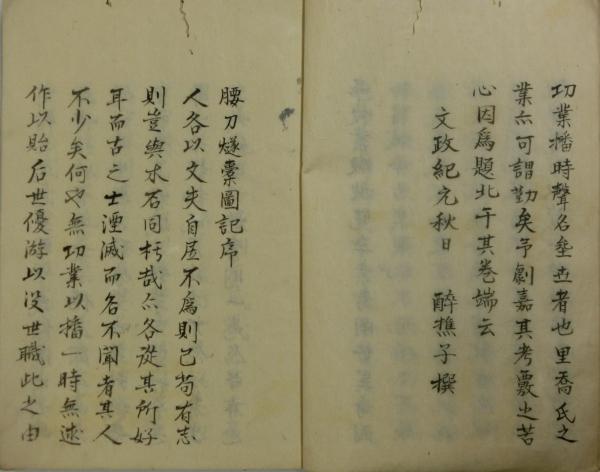 功業播時聲名垂世者也里喬氏之
業亦可謂勤矣予劇嘉其考覈之苦
心因爲題此于其卷端云
文政紀元秋日 醉樵子撰
腰刀燧嚢圖記序
人各以文夫自居不爲則已苟有志
則豈與木石同朽哉亦各從其所好
耳而古之士湮滅而名不聞者其人
不少矣何也無功業以播一時無述
作以貽后世優游以没世職此之由